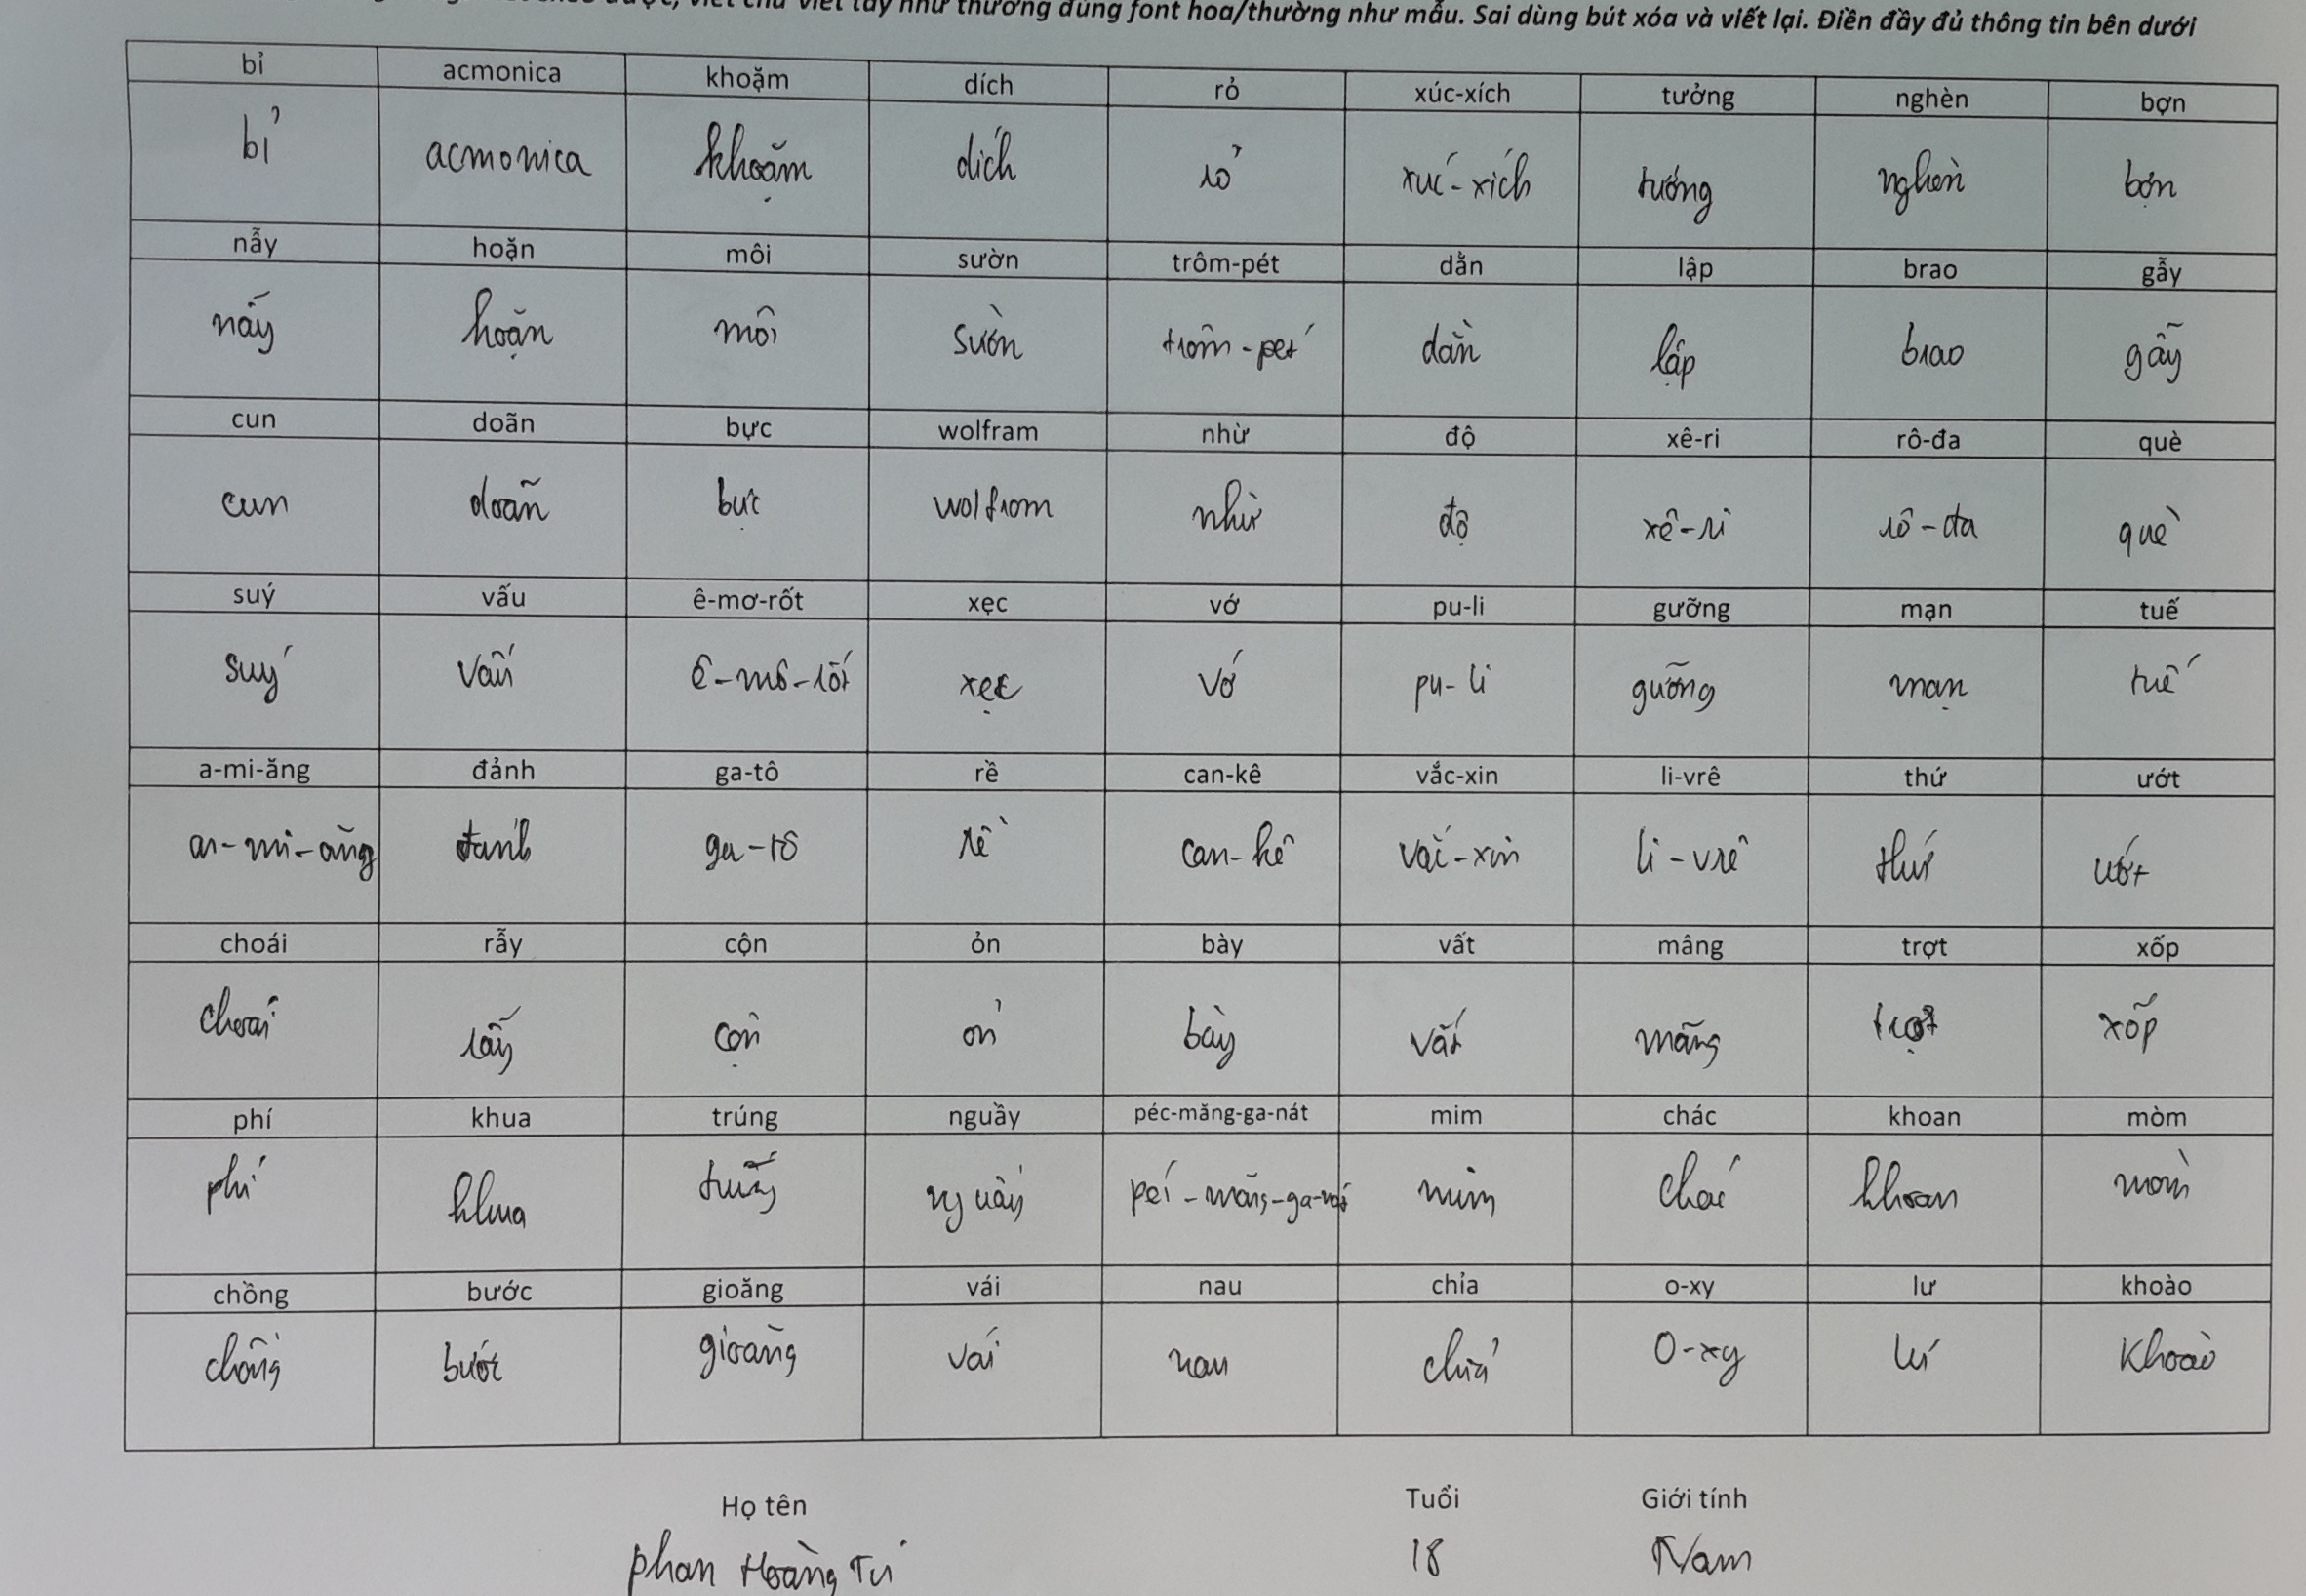 như thường dùng font hoa/thường như mẫu. Sai dùng bút xóa và viết lại. Điền đầy đủ thông tin bên dưới
bỉ acmonica khoặm dích rỏ xúc-xích tưởng nghèn bợn
bỉ acmonica khoặm dích rỏ xúc-xích tưởng nghèn bợn
nẫy hoặn môi sườn trôm-pét dằn lập brao gẫy
nẫy hoặn môi sườn trôm-pét dằn lập brao gẫy
cun doãn bực wolfram nhừ độ xê-ri rô-đa què
cun doãn bực wolfram nhừ độ xê-ri rô-đa què
suý vấu ê-mơ-rốt xẹc vớ pu-li gưỡng mạn tuế
suý vấu ê-mơ-rốt xẹc vớ pu-li gưỡng mạn tuế
a-mi-ăng đảnh ga-tô rề can-kê vắc-xin li-vrê thứ ướt
a-mi-ăng đảnh ga-tô rề can-kê vắc-xin li-vrê thứ ướt
choái rẫy cộn ỏn bày vất mâng trợt xốp
choái rẫy cộn ỏn bày vất mâng trợt xốp
phí khua trúng nguầy péc-măng-ga-nát mim chác khoan mòm
phí khua trúng nguầy péc-măng-ga-nát mim chác khoan mòm
chồng bước gioăng vái nau chỉa o-xy lư khoào
chồng bước gioăng vái nau chỉa O-xy lư khoào
Họ tên Tuổi Giới tính
phan Hoàng Tú 18 Nam